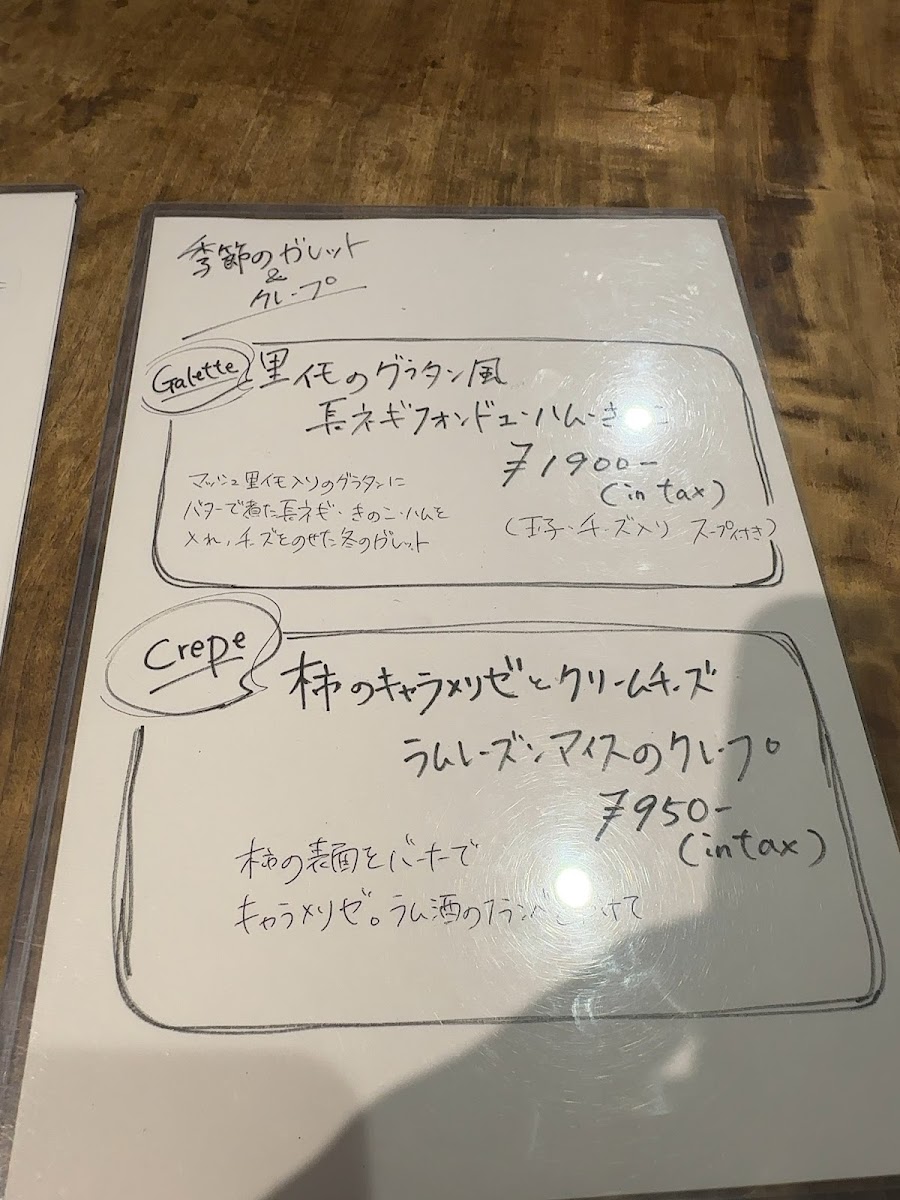 季節のガレット
&
クレープ
Galette 里イモのグラタン風
長ネギフォンデュ・ハム・き
¥1900-
(in tax)
マッシュ里イモ入りのグラタンに
バターで煮た長ネギ・きのこ・ハムを
入れ、チーズをのせた冬のガレット
(玉子・チーズ入り スープ付き)
Crepe
柿のキャラメリゼとクリームチーズ
ラムレーズンアイスのクレープ
¥950-
(in tax)
柿の表面をバーナーで
キャラメリゼ。ラム酒のフランベ けて